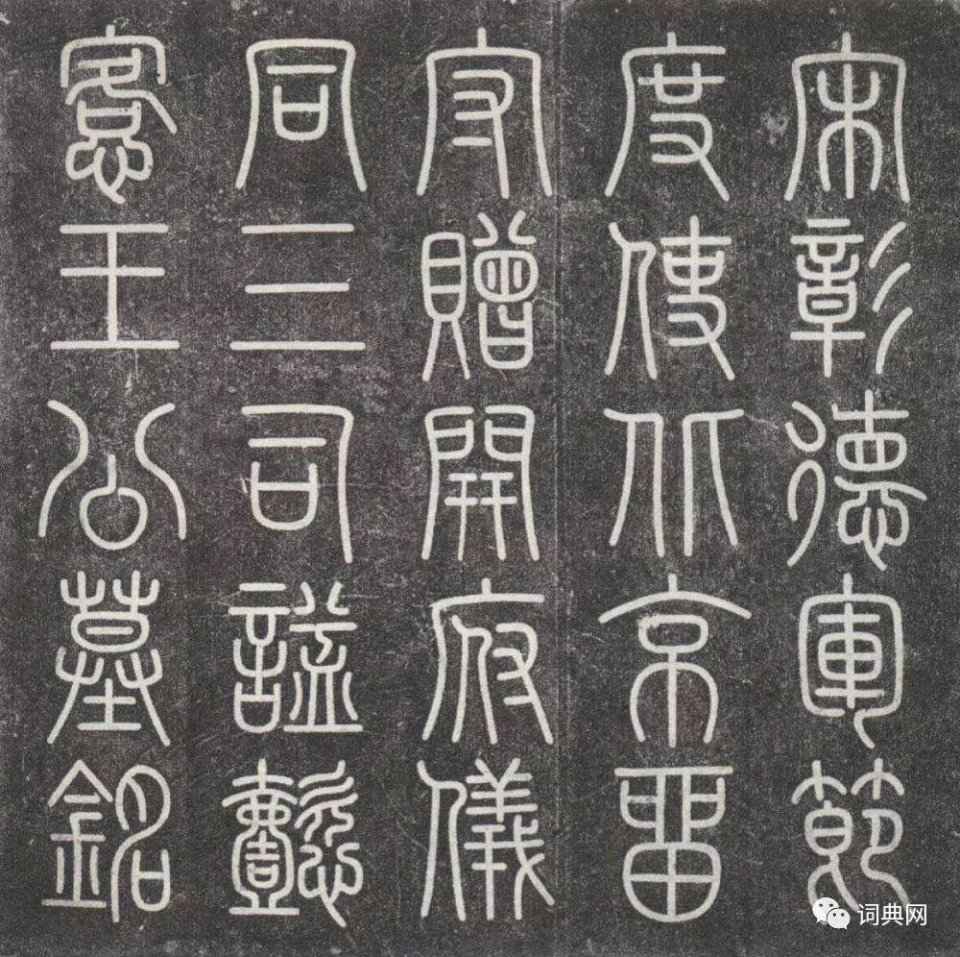 宋彰德軍節
度使北京留
守贈開府儀
同三司謚懿
愙王公墓銘
词典网